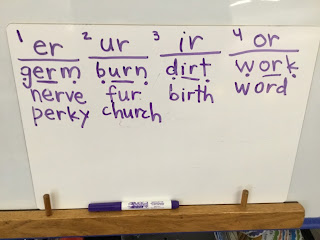 1 er 2 ur 3 ir 4 or
germ burn dirt work
nerve fur birth word
perky church